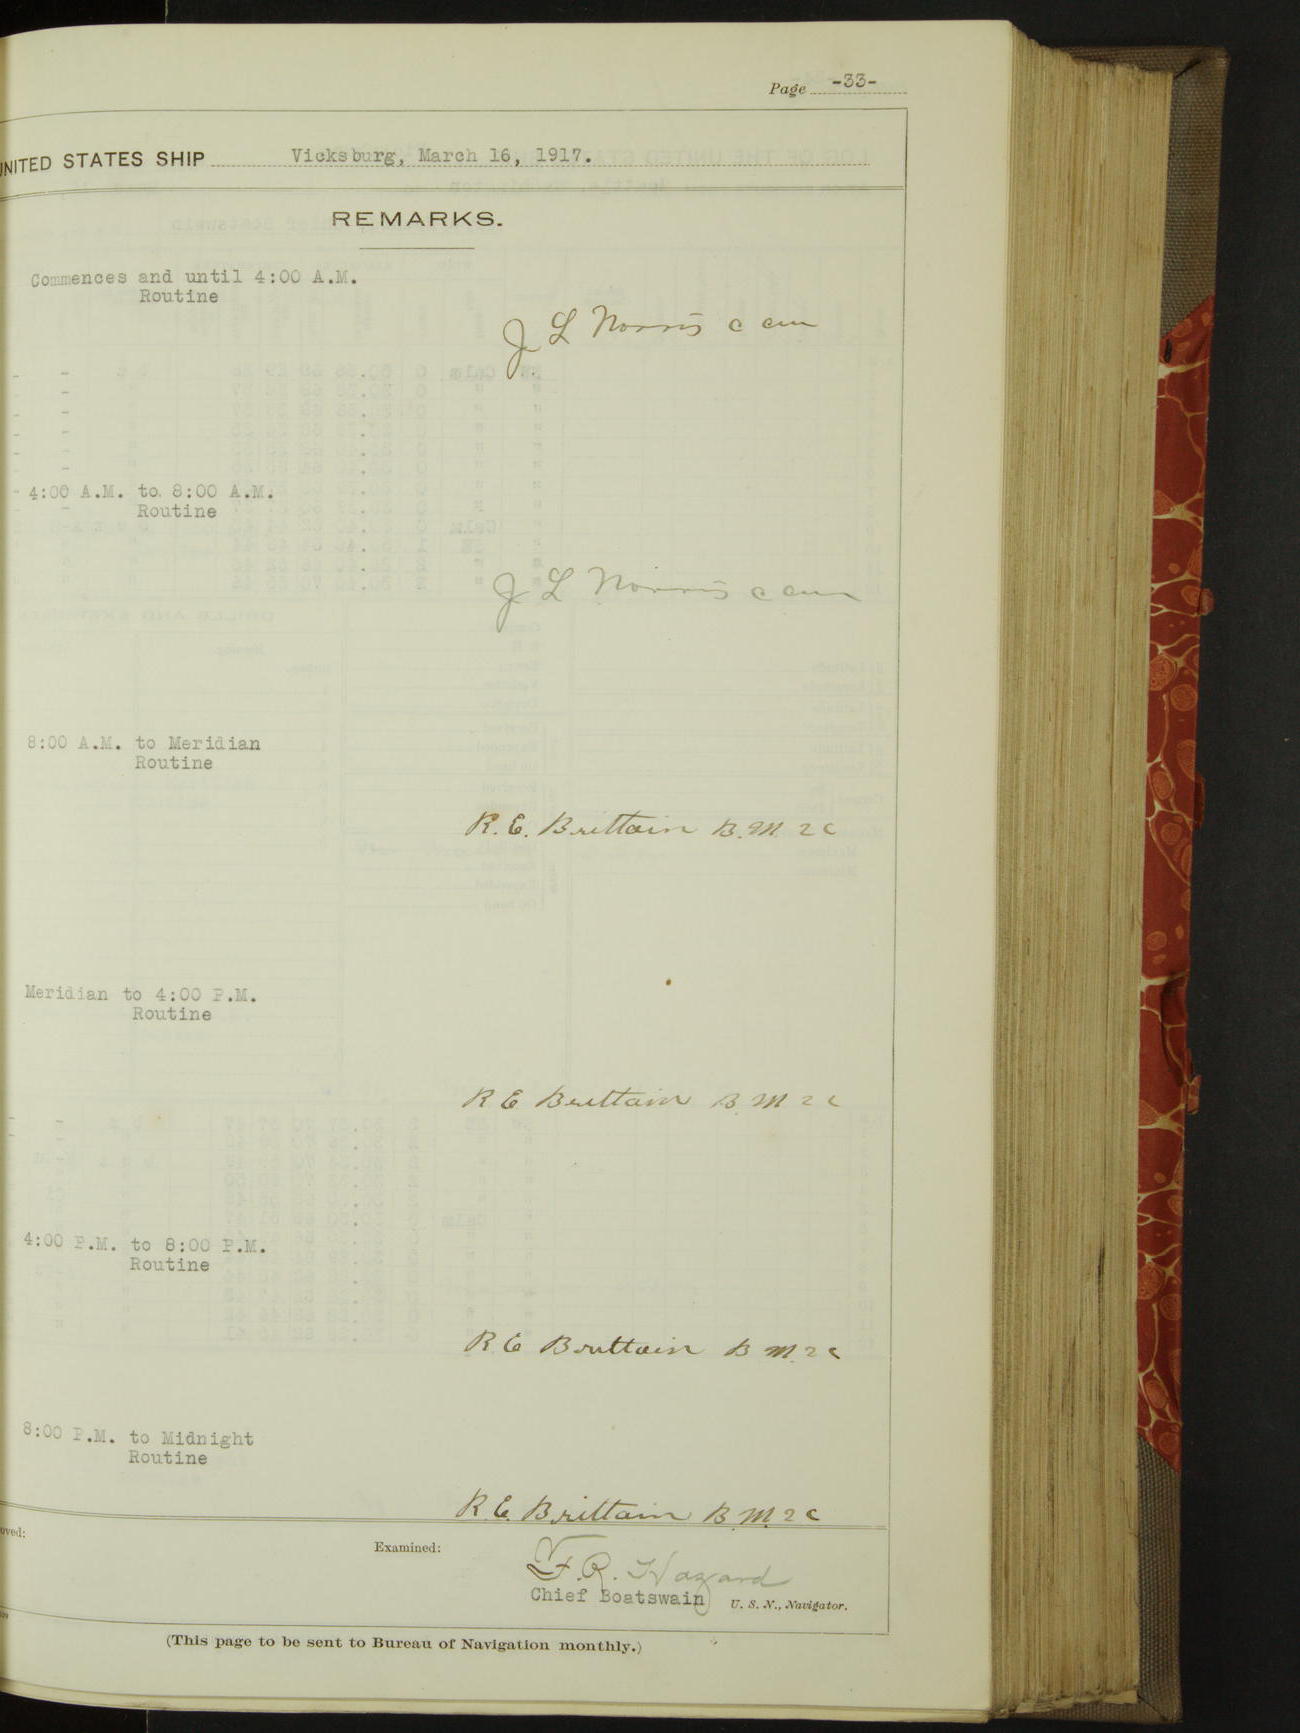 Page -33-
UNITED STATES SHIP Vicksburg, March 16, 1917.
REMARKS.
Commences and until 4:00 A.M.
Routine
J L Norris c cm
4:00 A.M. to 8:00 A.M.
Routine
J L Norris c cm
8:00 A.M. to Meridian
Routine
R. E. Brittain B. M. 2 c
Meridian to 4:00 P.M.
Routine
R E Brittain B. M 2 c
4:00 P.M. to 8:00 P.M.
Routine
R E Brittain B M. 2 c
8:00 P.M. to Midnight
Routine
R. E. Brittain B. M. 2 c
oved:
Examined:
F. R. Hazard
Chief Boatswain U. S. N., Navigator.
(This page to be sent to Bureau of Navigation monthly.)